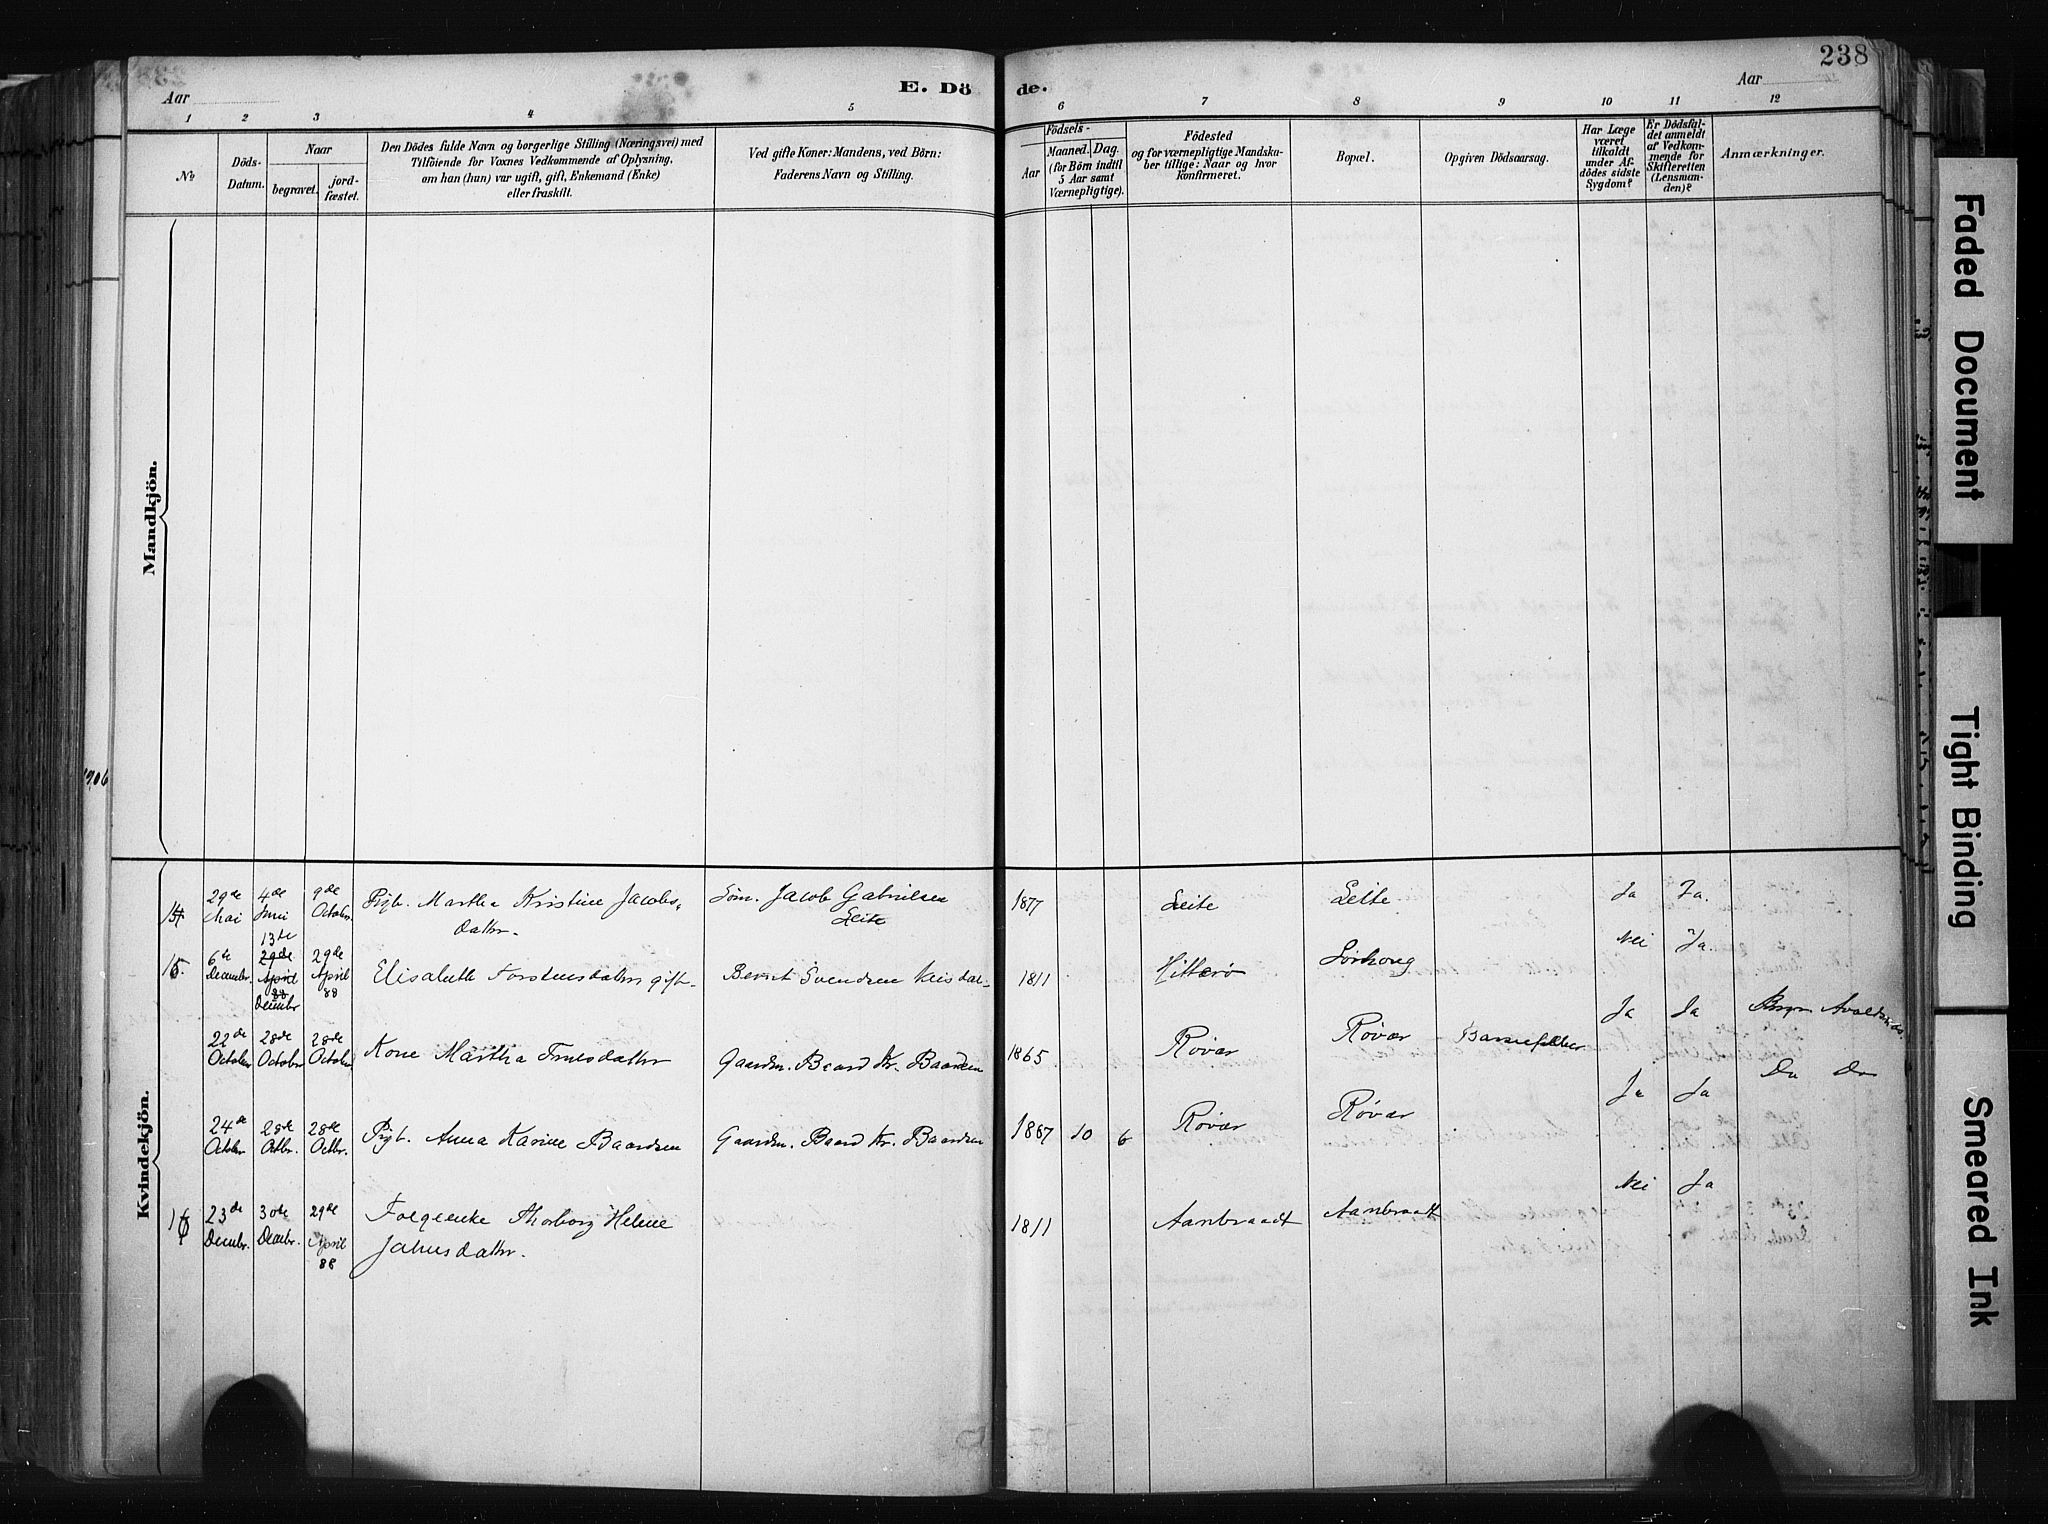 238
Aar
E. Dö
de.
Aar
1 2 3 4 5 6 7 8 9 10 11 12
No
Döds-
Datum.
Naar
begravet.
jord-
fæstet.
Den Dödes fulde Navn og borgerlige Stilling (Næringsvei) med
Tilföiende for Voxnes Vedkommende af Oplysning,
om han (hun) var ugift, gift, Enkemand (Enke)
eller fraskilt.
Ved gifte Koner: Mandens, ved Börn:
Faderens Navn og Stilling.
Födsels-
Aar
Maaned. Dag.
(for Börn indtil
5 Aar samt
Værnepligtige).
Födested
og for værnepligtige Mandska-
ber tillige: Naar og hvor
konfirmeret.
Bopæl.
Opgiven Dödsaarsag.
Har Læge
været
tilkaldt
under Af-
dödes sidste
Sygdom?
Er Dödsfal-
det anmeldt
af Vedkom-
mende for
Skifteretten
(Lensman-
den)?
Anmærkninger.
Mandkjön.
Kvindekjön.
29de Mai 4de Juni 9de Octobr. Pigb. Martha Kristine Jacobs-
datter. Jacob Gabrielsen
Leite 1877 Leite Leite Ja Ja.
15. 6te Decembr. 13de
29de
April
88
Decembr 29de April 88 Elisabeth Torstensdatter gift. Bernt Svendsen 1811 Hitterö Sörhoug Nei Ja.
22de October 28de October 28de October Kone Martha Gaardm. Baard Kr. Baardsen 1865 Rövær Rövær Barselfeber Ja Ja
24de October 28de Octbr. 28de Octbr. Pigb. Anna Karine Baardsen Gaardm. Baard Kr. Baardsen 1887 10 6 Rövær Rövær Ja Ja Do Do
16 23de Decembr. 30de Decembr. 29de April 88 Thorborg Helene
1811 Aanbraadt Aanbraadt Nei Ja
1906
Faded Document
Tight Binding
Smeared Ink